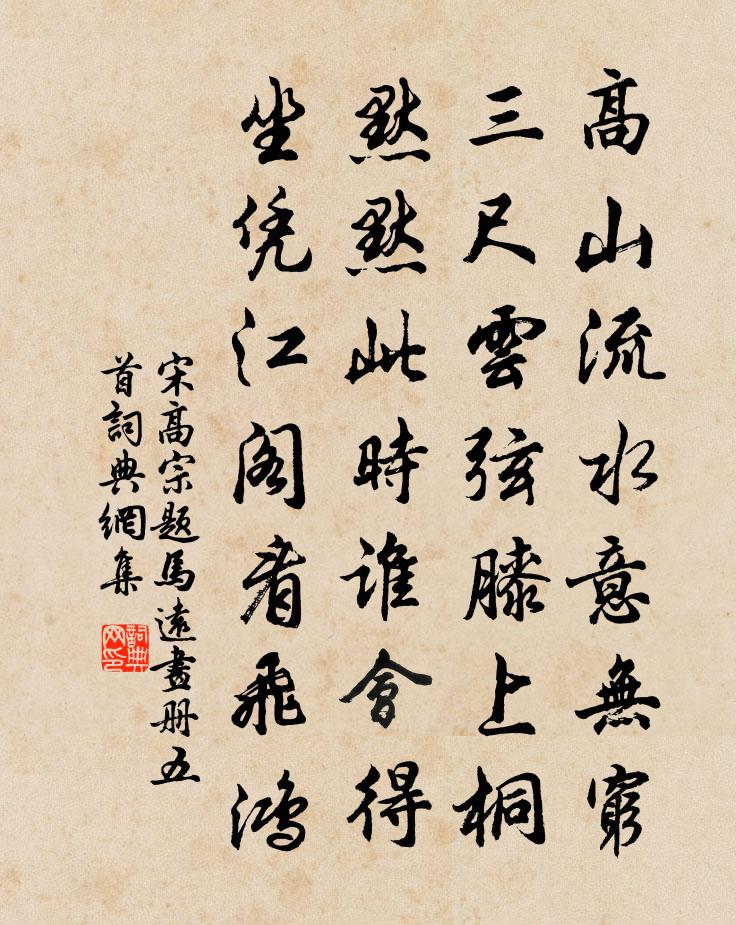 高山流水意無窮
三尺雲弦膝上桐
默默此時誰會得
坐凭江阁看飛鴻
宋高宗题馬遠畫册五
首詞典網集
詞典網印